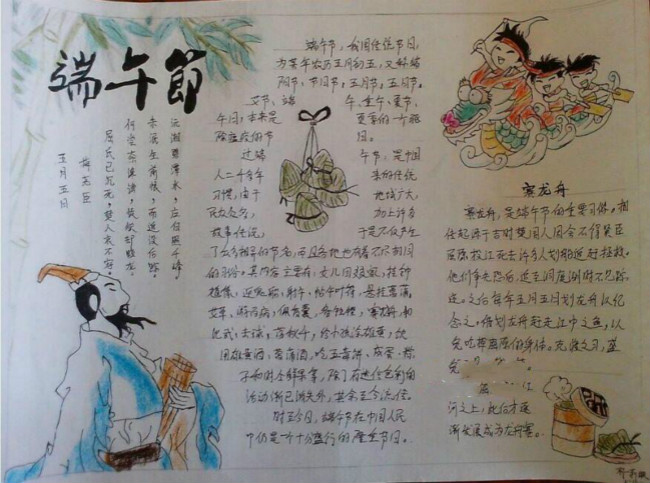 端午節
五月五日
梅尧臣
屈氏已沉死，楚人哀不容。
何尝奈谗谤，徒欲却蛟龙。
未泯生前恨，而追没后踪。
沅湘碧潭水，应自照千峰。
端午节，我国传统节日，
为每年农历五月初五，又称端
阳节、午日节，五月节，五日节，
艾节、端午、重午、夏节，
午日，本来是夏季的一个驱
除瘟疫的节日。
过端午节，是中国
人二千多年来的传统
习惯，由于地域广大，
民族众多，加上许多
故事传说，于是不仅产生
了众多相异的节名，而且各地也有着不尽相同
的习俗。其内容主要有：女儿回娘家，挂钟
馗像，迎鬼船、躲午，帖午叶符，悬挂菖蒲、
艾草，游百病，佩香囊，备牲醴，赛龙舟，比
武，击球，荡秋千，给小孩涂雄黄，饮
用雄黄酒、菖蒲酒，吃五毒饼、咸蛋、粽
子和时令鲜果等，除了有迷信色彩的
活动渐已消失外，其余至今流传
时至今日，端午节在中国人民
中仍是一个十分盛行的隆重节日。
赛龙舟
赛龙舟，是端午节的主要习俗。相
传起源于古时楚国人因舍不得贤臣
屈原投江死去许多人划船追赶拯救。
他们争先恐后，追至洞庭湖时不见踪
迹，之后每年五月五日划龙舟以纪
念之。借划龙舟赶走江中之鱼，以
免吃掉屈原的身体。竞渡之习，盛
河之上，此后才逐
渐发展成为龙舟赛。